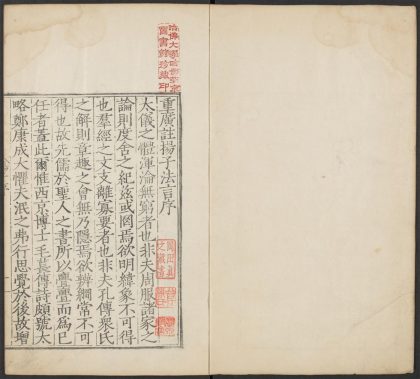 重廣註揚子法言序
太儀之體渾淪無窮者也非夫周服諸家之
論則度舍之紀茲或罔焉欲明緯象不可得
也羣經之文支離寡要者也非夫孔傳衆氏
之解則章趣之會無乃隱焉欲辨綱常不可
得也故先儒於聖人之書所以亹亹而爲已
任者蓋此爾惟西京博士毛萇傳詩頗號太
略鄭康成大懼天泯之弗行思覺於後故增